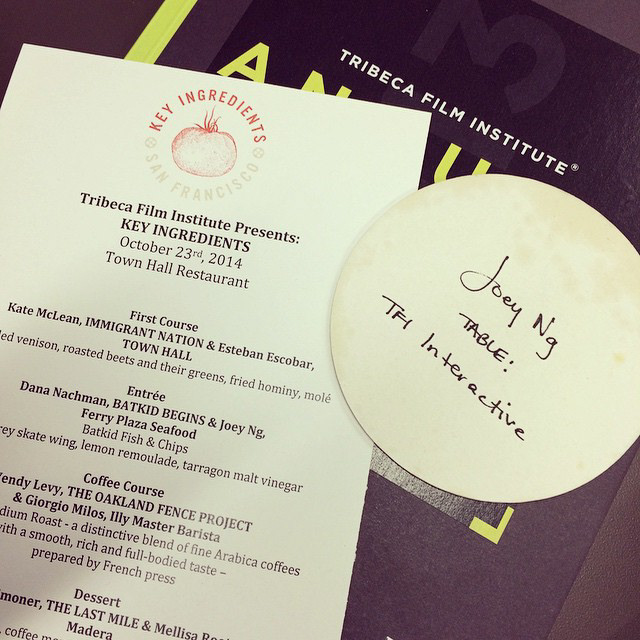 KEY INGREDIENTS
SAN FRANCISCO
Tribeca Film Institute Presents:
KEY INGREDIENTS
October 23rd, 2014
Town Hall Restaurant
First Course
Kate McLean, IMMIGRANT NATION & Esteban Escobar,
TOWN HALL
venison, roasted beets and their greens, fried hominy, molé
Entrée
Dana Nachman, BATKID BEGINS & Joey Ng,
Ferry Plaza Seafood
Batkid Fish & Chips
skate wing, lemon remoulade, tarragon malt vinegar
Coffee Course
Wendy Levy, THE OAKLAND FENCE PROJECT
& Giorgio Milos, Illy Master Barista
Roast - a distinctive blend of fine Arabica coffees
with a smooth, rich and full-bodied taste –
prepared by French press
Dessert
THE LAST MILE & Mellisa
Madera
coffee
TRIBECA FILM INSTITUTE®
Joey Ng
TABLE:
TFI Interactive